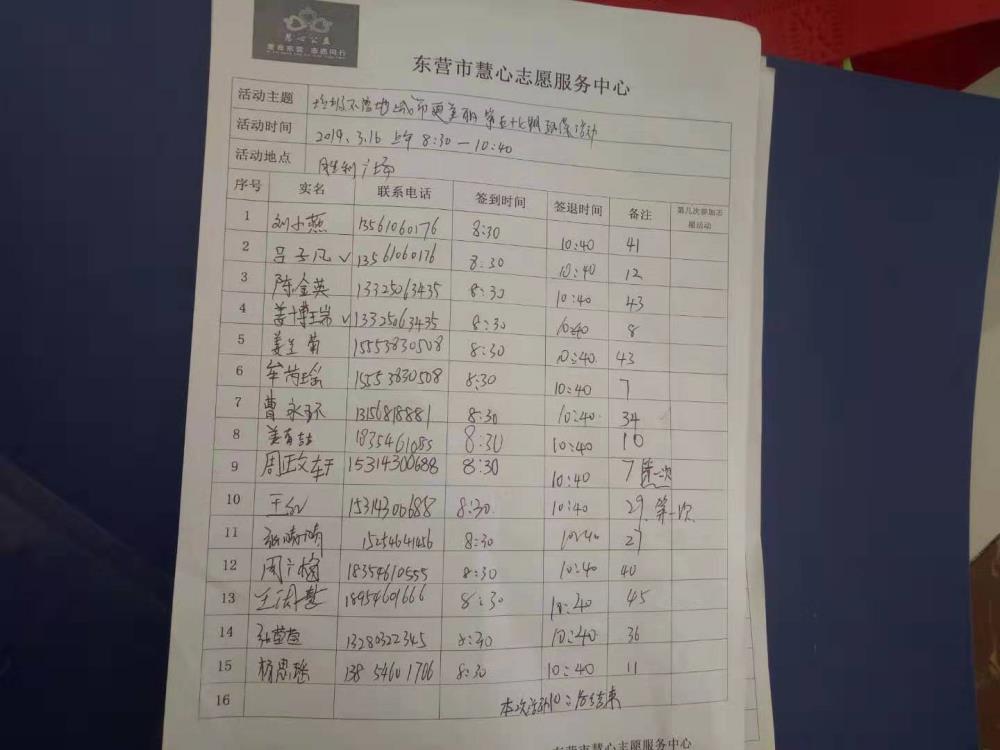 慧心公益
爱在东营 志愿同行
东营市慧心志愿服务中心
活动主题 垃圾不落地 城市更美丽 第五十七期环保活动
活动时间 2019.3.16 上午 8:30-10:40
活动地点 胜利广场
序号 实名 联系电话 签到时间 签退时间 备注 第几次参加志愿活动
1 刘小燕 13561060176 8:30 10:40 41
2 吕子凡 √ 13561060176 8:30 10:40 12
3 陈金英 13325063435 8:30 10:40 43
4 姜博瑞 √ 13325063435 8:30 10:40 8
5 姜兰菊 15553830508 8:30 10:40 43
6 15553830508 8:30 10:40 7
7 曹永环 13156818881 8:30 10:40 34
8 1835461085 8:30 10:40 10
9 周正文轩 15314300688 8:30 10:40 7 第一次
10 王红 15314300688 8:30 10:40 29 第一次
11 15254641456 8:30 10:40 27
12 周广梅 18354610555 8:30 10:40 40
13 18954601666 8:30 10:40 45
14 13280322345 8:30 10:40 36
15 杨思瑶 13854601706 8:30 10:40 11
16 本次活动10:40结束
东营市慧心志愿服务中心